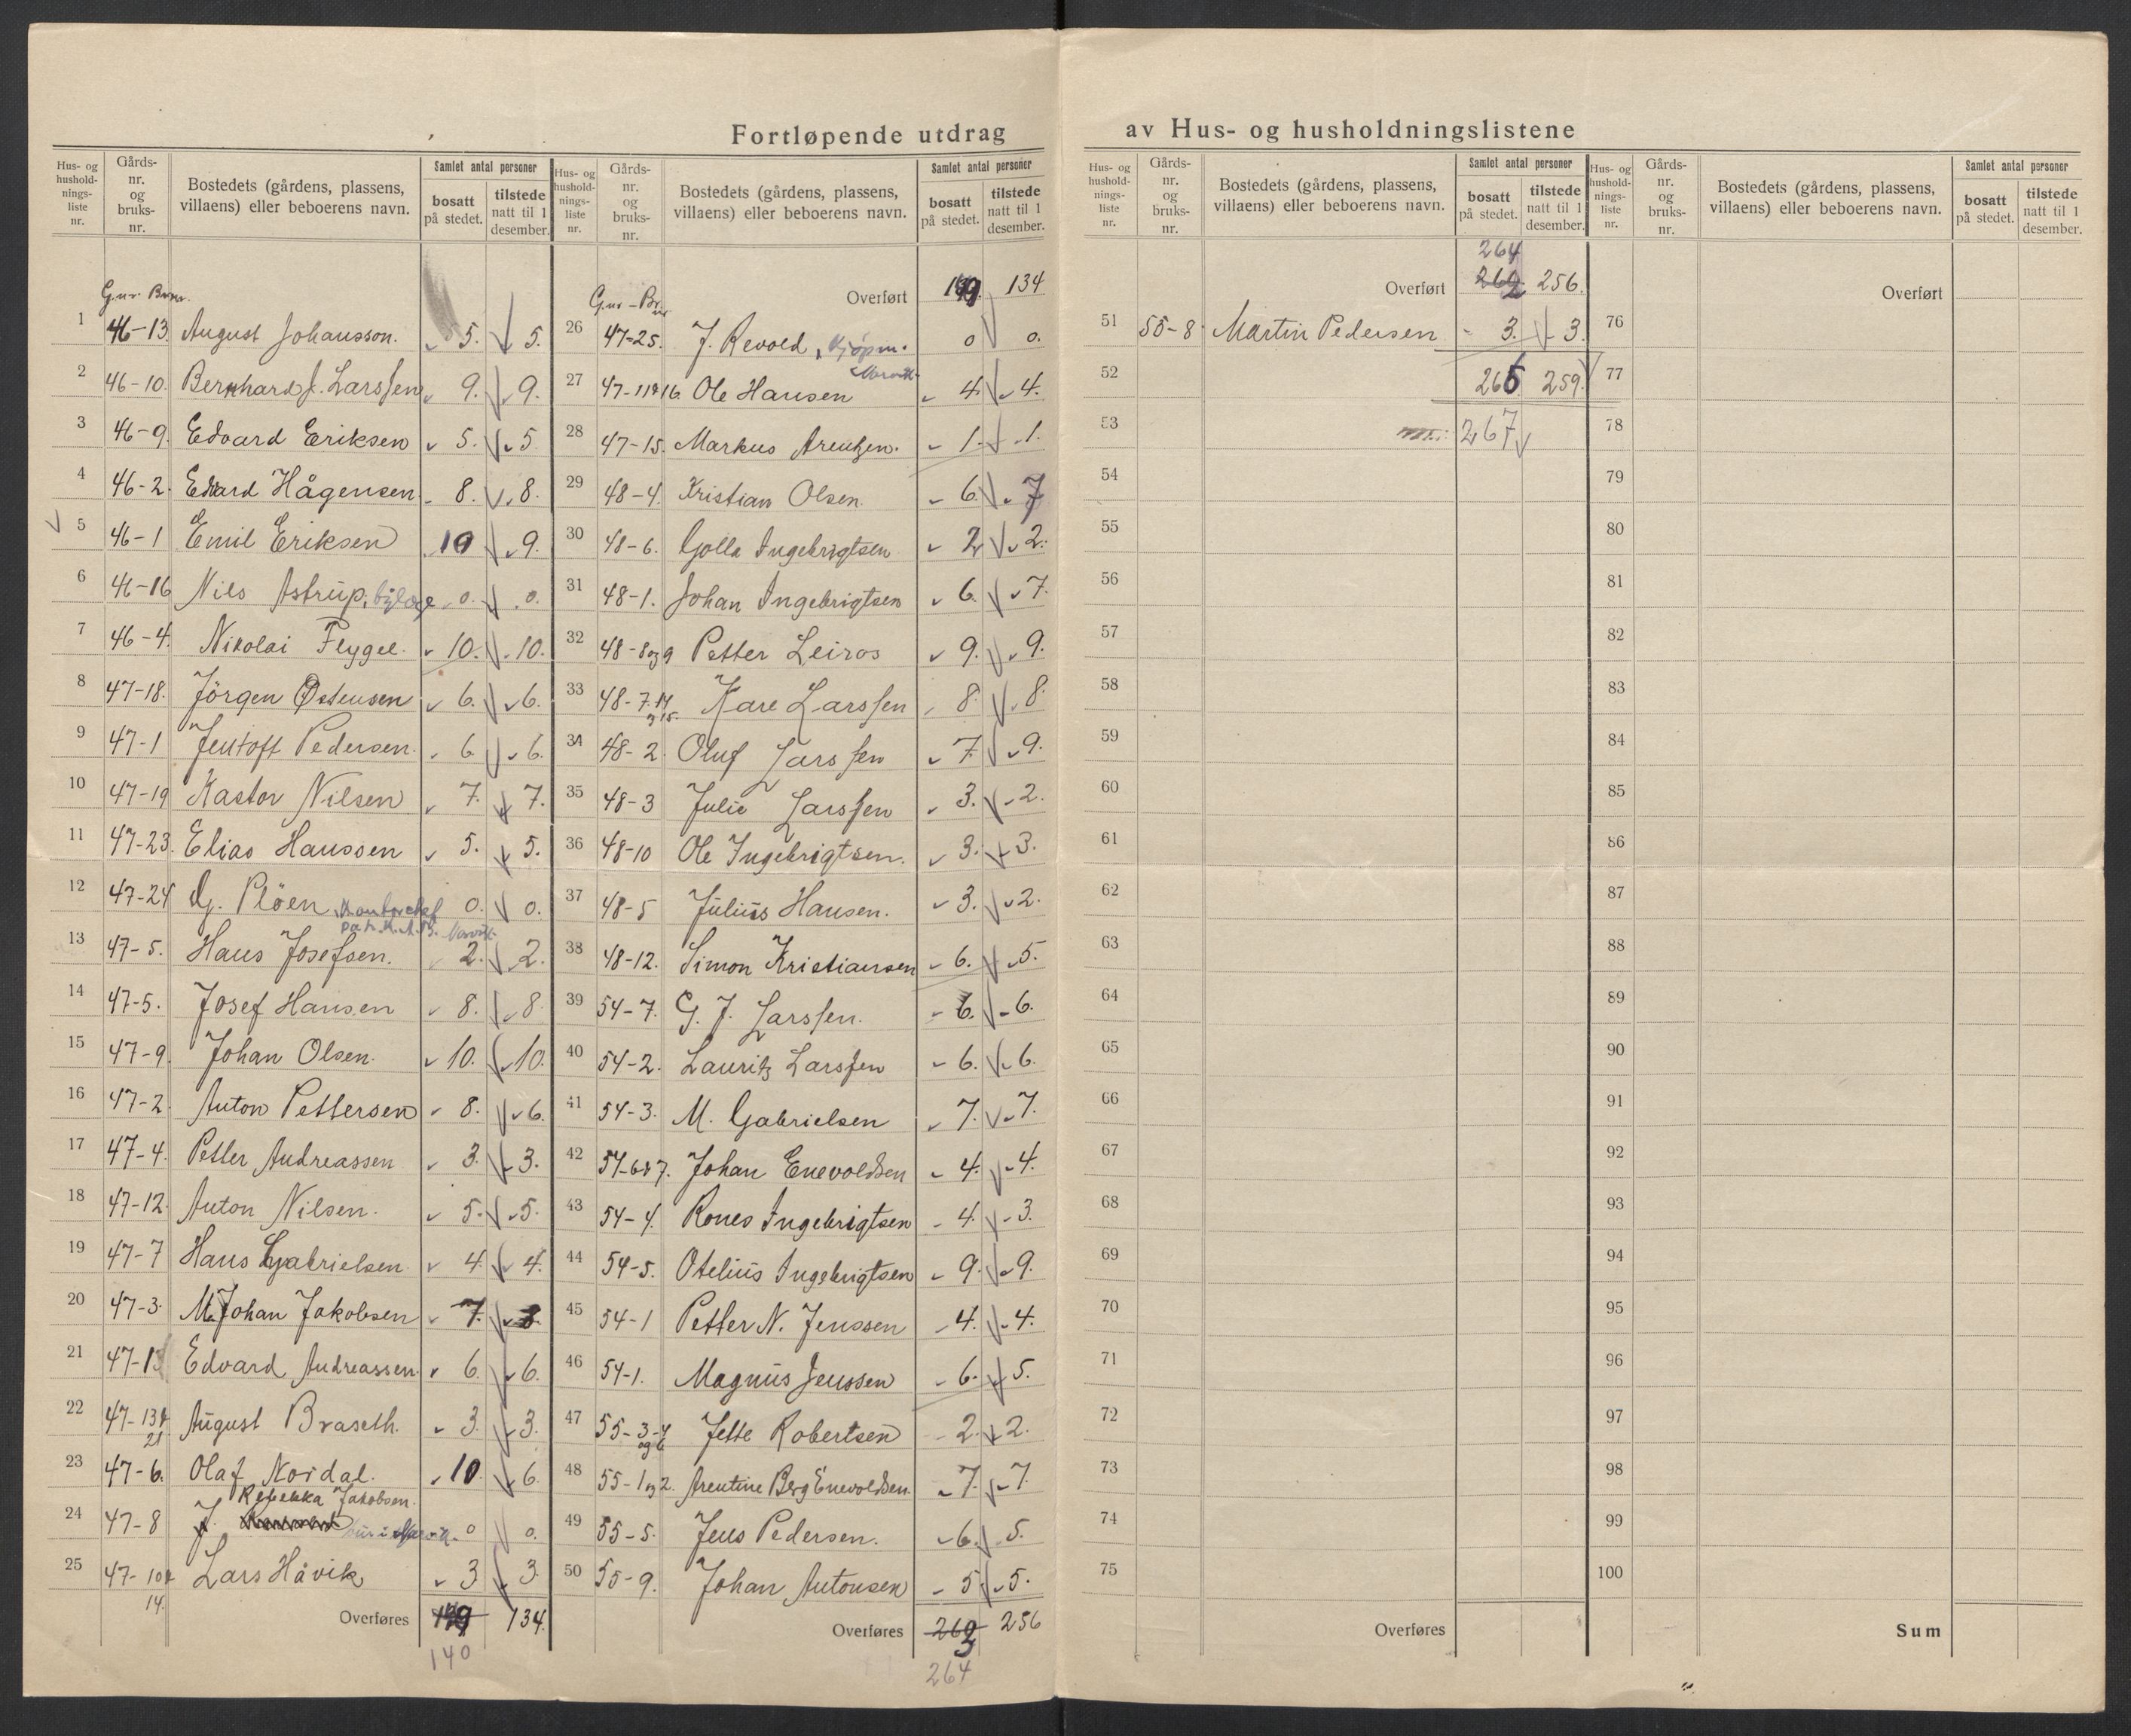 Fortløpende utdrag av Hus- og husholdningslistene
Hus- og husholdnings-liste nr. Gårds-nr. og bruks-nr. Bostedets (gårdens, plassens, villaens) eller beboerens navn. Samlet antal personer bosatt på stedet. tilstede natt til 1 desember.
Gnr. Brnr.
1 46-13 August Johansson. 5. 5.
2 46-10. Bernhard J. Larssen 9. 9.
3 46-9. Edvard Eriksen 5. 5
4 46-2. Edvard Hågensen 8. 8.
5 46-1 Emil Eriksen 10 9.
6 46-16 Nils Astrup, 0. 0.
7 46-4. Nikolai Flygel. 10. 10.
8 47-18. Jörgen Østensen 6. 6.
9 47-1 Jentoft Pedersen. 6 6.
10 47-19 Kastor Nilsen 7. 7.
11 47-23. Elias Hanssen 5. 5.
12 47-24 G. Plöen, Kontorchef 0. 0.
Narvik.
13 47-5. Hans Josefsen. 2. 2.
14 47-5. Josef Hansen 8. 8.
15 47-9. Johan Olsen. 10. 10.
16 47-2. Anton Pettersen 8. 6.
17 47-4. Petter Andreassen 3. 3.
18 47-12. Anton Nilsen. 5. 5.
19 47-7 Hans Gabrielsen 4. 4.
20 47-3. Johan Jakobsen 7. 8.
21 47-1 Edvard Andreassen. 6. 6.
22 47-13& August Braseth. 3. 3.
21
23 47-6. Olaf Nordal. 10. 6.
Rebekka Jakobsen.
24 47-8 0 0.
25 47-10& Lars Håvik 3 3.
14.
Overføres 139 134.
140
Hus- og husholdnings-liste nr. Gårds-nr. og bruks-nr. Bostedets (gårdens, plassens, villaens) eller beboerens navn. Samlet antal personer bosatt på stedet. tilstede natt til 1 desember.
Gnr - Brnr Overført 139. 134
26 47-25. J. Revold, Kjøpm. 0 0.
Narvik.
27 47-11&16. Ole Hansen 4. 4.
28 47-15. Markus Arentzen. 1. 1.
29 48-4. Kristian Olsen. 6. 7
30 48-6. Golla Ingebrigtsen 2 2.
31 48-1. Johan Ingebrigtsen 6. 7.
32 48-8og9 Petter Leiros 9. 9.
33 48-7.14 Kare Larssen 8. 8.
og 15.
34 48-2. Oluf Larssen 7. 9.
35 48-3 Julie Larssen 3. 2.
36 48-10 Ole Ingebrigtsen. 3. 3.
37 48-5 Julius Hansen. 3. 2.
38 48-12. Simon Kristiansen 6. 5.
39 54-7. G. J. Larssen. 6. 6.
40 54-2. Lauritz Larssen 6. 6.
41 54-3. M. Gabrielsen 7. 7.
42 54-6&7. Johan Enevoldsen 4. 4.
43 54-4. Rones Ingebrigtsen 4. 3.
44 54-5. Otelius Ingebrigtsen 9. 9.
45 54-1 Petter N. Jenssen 4. 4.
46 54-1. Magnus Jenssen 6. 5.
47 55-3-4 Jette Robertsen 2. 2.
og 6
48 55-1og2. Arentine Berg Enevoldsen. 7. 7.
49 55-5. Jens Pedersen. 6. 5.
50 55-9. Johan Antonsen 5 5.
Overføres 262 256
264
Hus- og husholdnings-liste nr. Gårds-nr. og bruks-nr. Bostedets (gårdens, plassens, villaens) eller beboerens navn. Samlet antal personer bosatt på stedet. tilstede natt til 1 desember.
264
Overført 262 256.
51 55-8 Martin Pedersen 3. 3.
52 265 259.
53 267
54
55
56
57
58
59
60
61
62
63
64
65
66
67
68
69
70
71
72
73
74
75
Overføres
Hus- og husholdnings-liste nr. Gårds-nr. og bruks-nr. Bostedets (gårdens, plassens, villaens) eller beboerens navn. Samlet antal personer bosatt på stedet. tilstede natt til 1 desember.
Overført
76
77
78
79
80
81
82
83
84
85
86
87
88
89
90
91
92
93
94
95
96
97
98
99
100
Sum